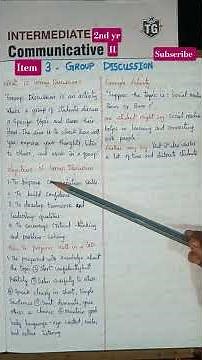 INTERMEDIATE 2nd yr
TG
Communicative II
Subscribe
Item 3 - GROUP DISCUSSION
What is Group Discussion
Group Discussion is an activity
where a group of students discuss
a specific topic and share their
ideas. The aim is to check how well
you express your thoughts, listen
to others, and work in a group.
Objectives of Group Discussion
1. To improve communication skills
2. To build confidence
3. To develop teamwork and
leadership qualities
4. To encourage critical thinking
and problem-solving.
How to prepare well in a GD:
1. Be prepared with knowledge about
the topic 2) Start confidently but
politely 3) Listen carefully to others
4) Speak clearly in short, simple
sentences 5) Don't dominate, give
others a chance 6) Maintain good
body language - eye contact, smile,
and active listening
Example Activity
Suppose the topic is: Social media
Boon or Bane?
One student might say: Social media
helps in learning and connecting
with people.
Another may say: But it also wastes
a lot of time and distracts students